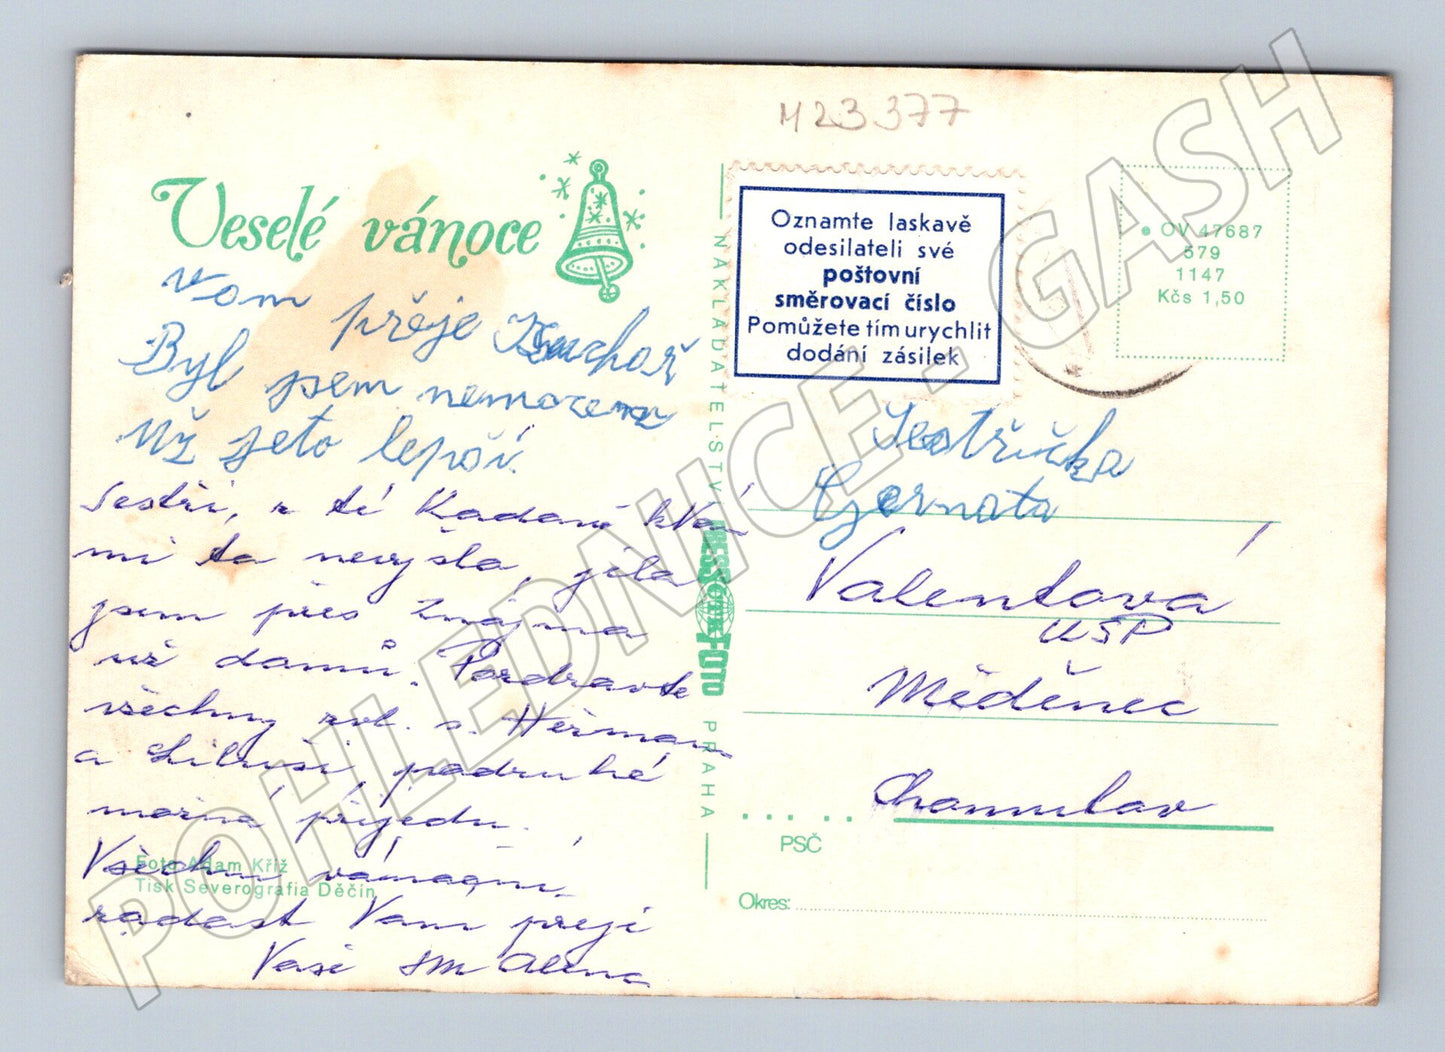 M23377
Veselé vánoce
Vom přeje
Byl jsem nemocen
Už jeto lepší.
Sestři, z té Kadaně k Vá
mi to nevyšlo, jela
jsem přes Znojmo
už domů. Pozdravte
všechny zvl. s. Heřman
a Libuši, podruhé
možná přijedu.
Všechnu vánoční
radost Vám přeji
Vaše SM Alena
Foto Adam Kříž
Tisk Severografia Děčín
NAKLADATELSTVÍ PRESSFOTO PRAHA
Oznamte laskavě
odesilateli své
poštovní
směrovací číslo
Pomůžete tím urychlit
dodání zásilek
OV 47687
579
1147
Kčs 1,50
Sestřička
Valentová
ÚSP
Měděnec
Chomutov
PSČ
Okres:
POHLEDNICE . GASH